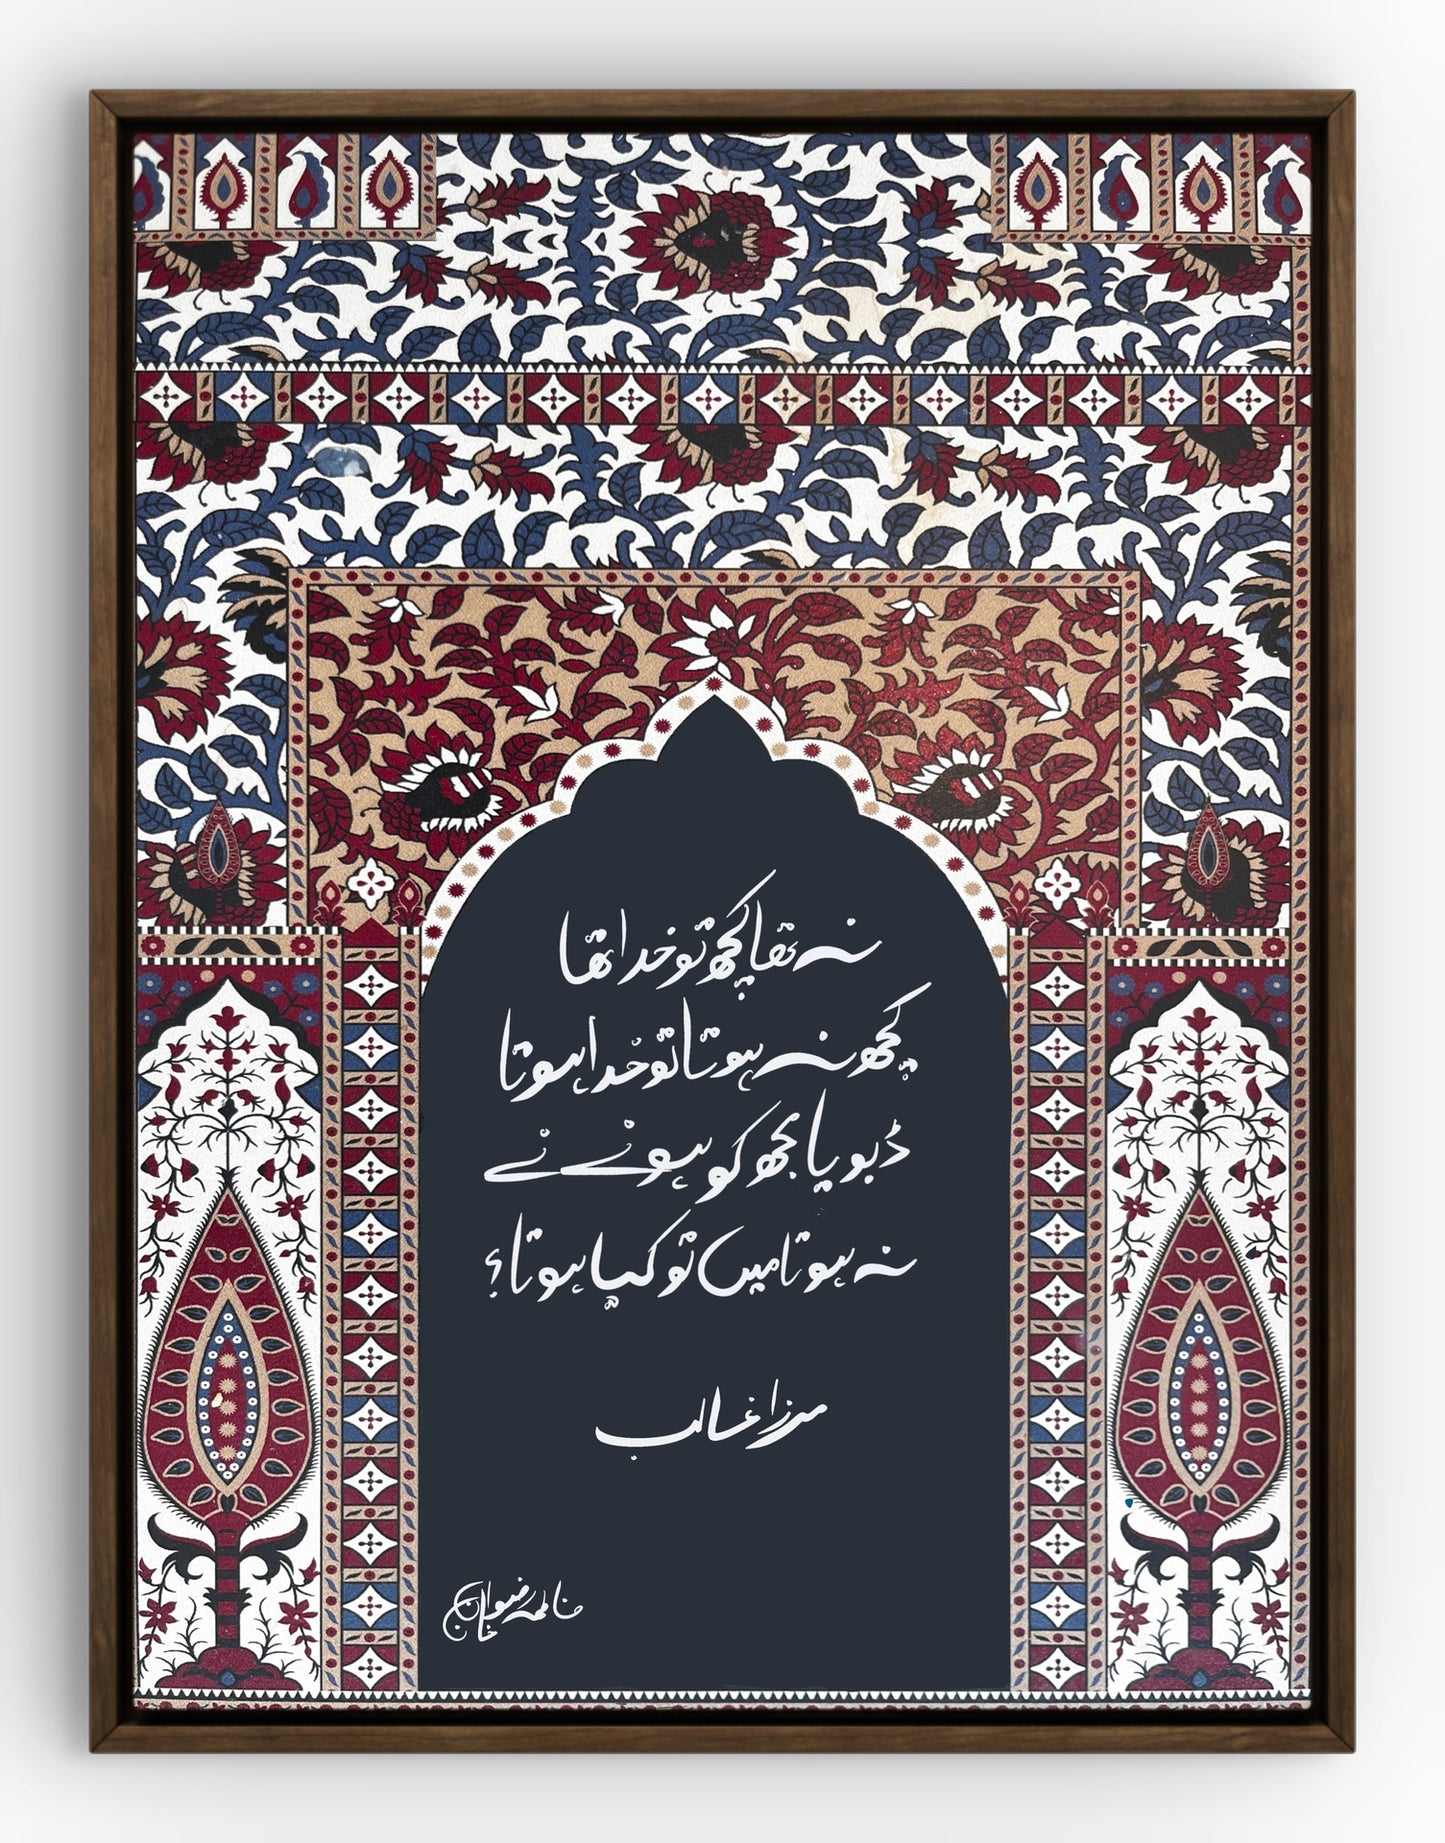 نہ تھا کچھ تو خدا تھا
کچھ نہ ہوتا تو خدا ہوتا
ڈبویا مجھ کو ہونے نے
نہ ہوتا میں تو کیا ہوتا؟
مرزا غالب
فاطمہ رضوان خان